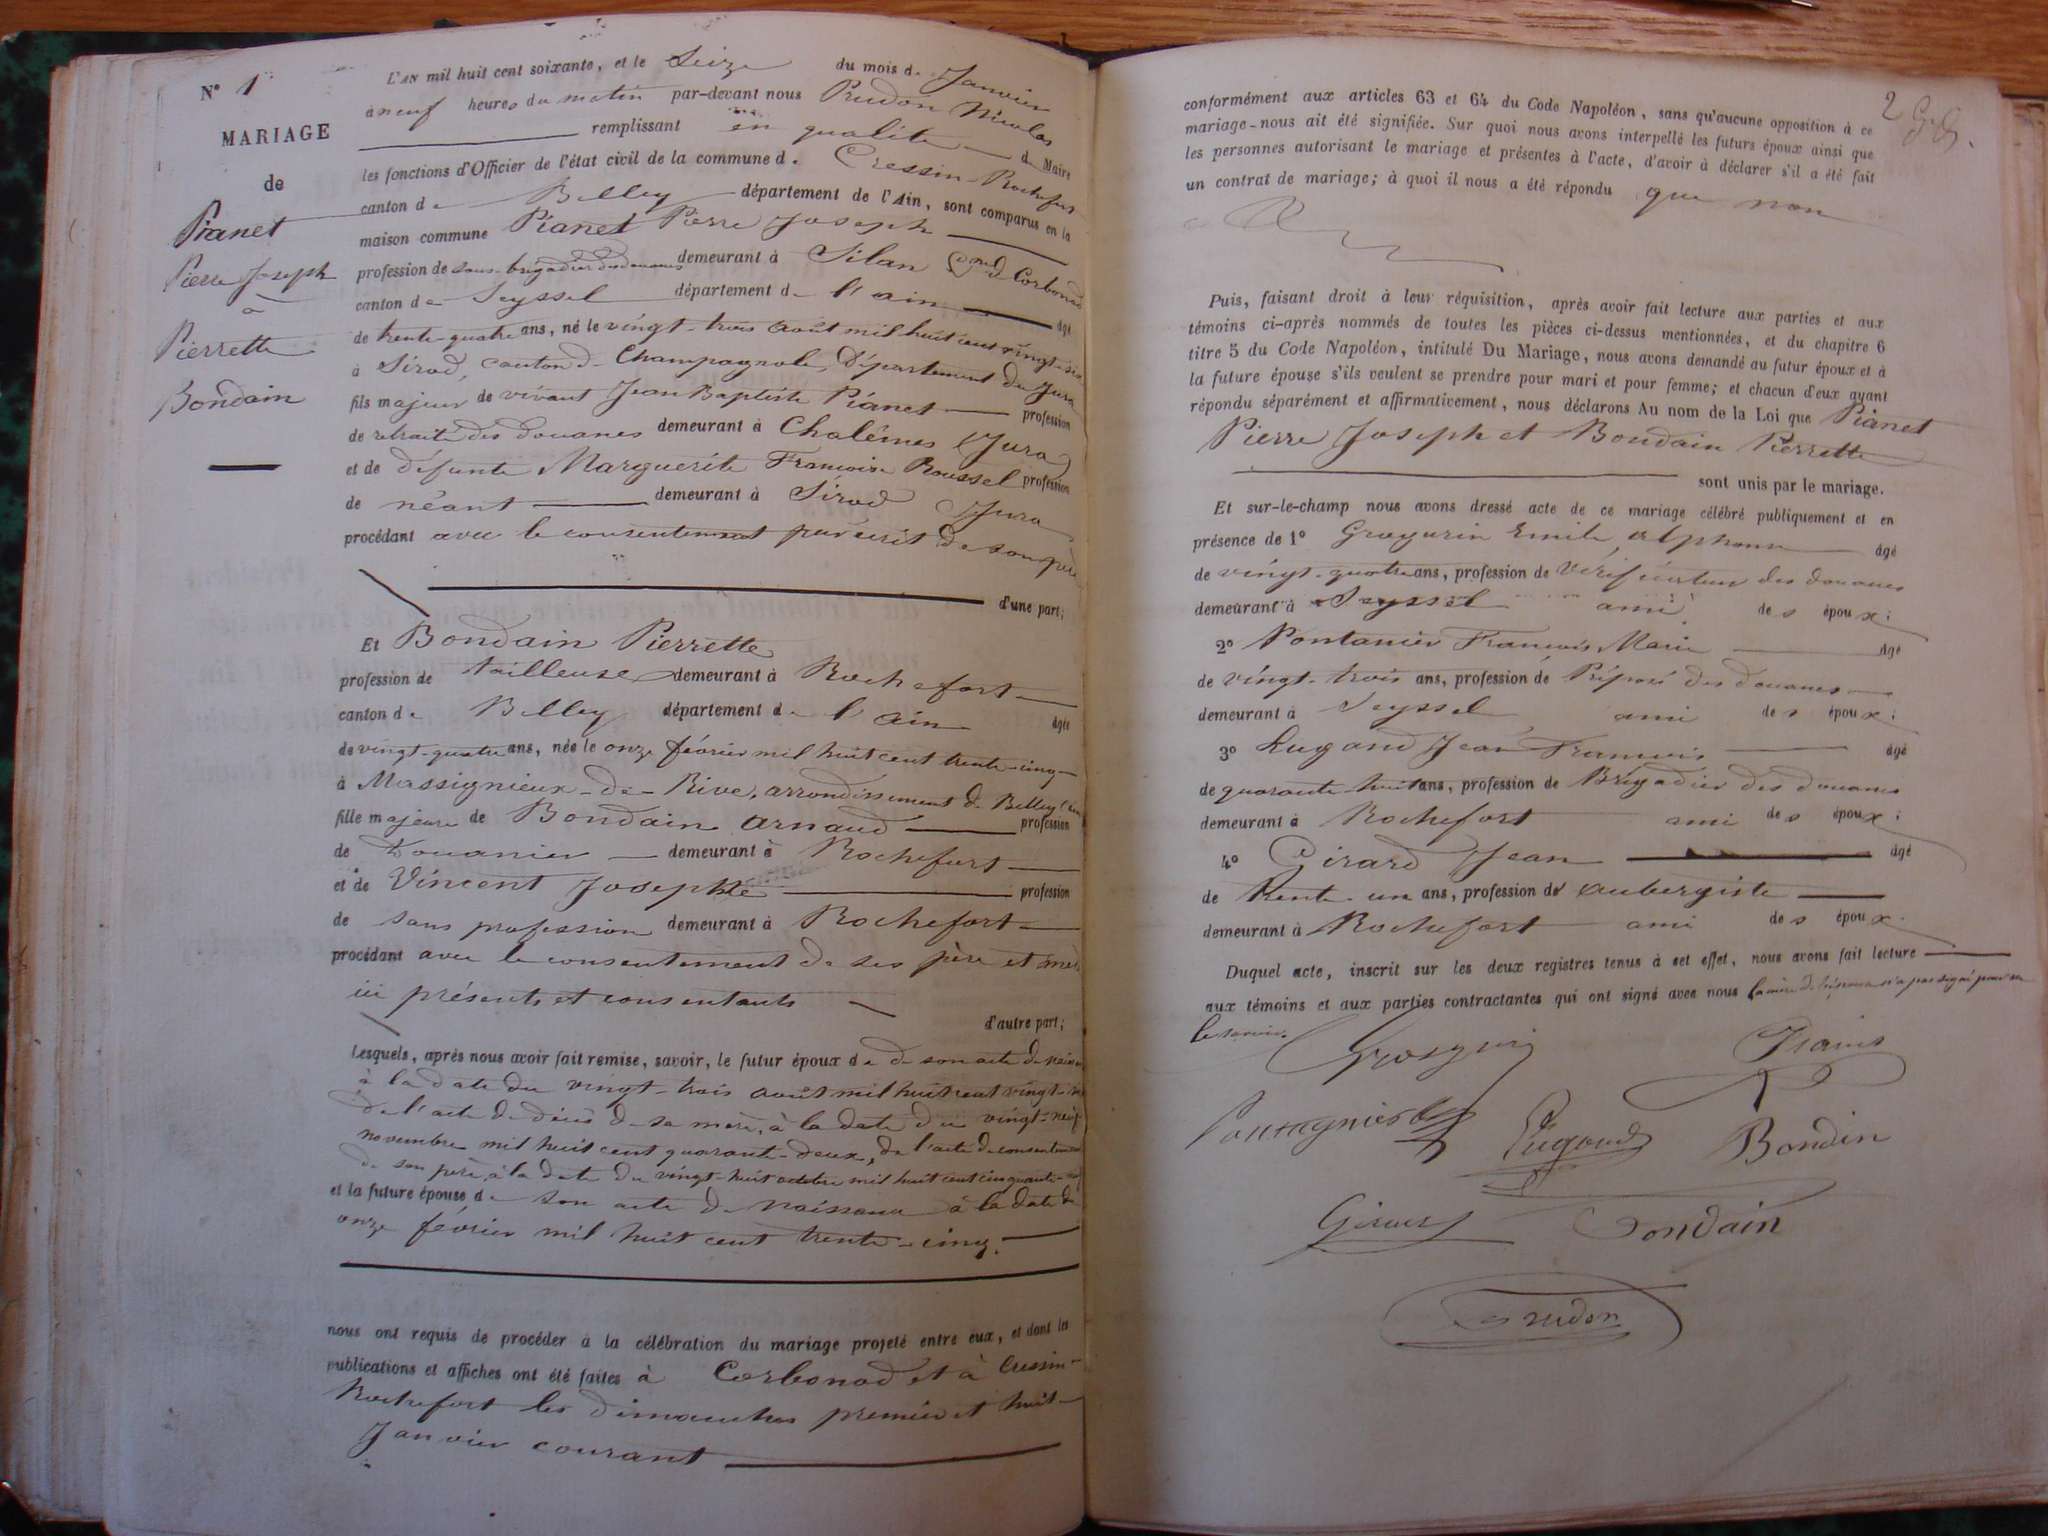 N° 1
MARIAGE
de
Pianet
Pierre Joseph
à
Pierrette
Bondain
L'AN mil huit cent soixante, et le Seize du mois de Janvier
à neuf heures du matin par-devant nous Prudon Nicolas
remplissant en qualité de Maire
les fonctions d'Officier de l'état civil de la commune de Cressin-Rochefort
canton de Belley département de l'Ain, sont comparus en la
maison commune Pianet Pierre Joseph
profession de sous-brigadier des douanes demeurant à Silan Com. de Corbonod
canton de Seyssel département de l'ain âgé
de trente-quatre ans, né le vingt-trois août mil huit cent vingt-six
à Sirod, canton de Champagnole, Département du Jura
fils majeur de vivant Jean Baptiste Pianet profession
de retraité des douanes demeurant à Chalêmes (Jura)
et de défunte Marguerite Françoise Roussel profession
de néant demeurant à Sirod Jura
procédant avec le consentement par écrit de son père
d'une part;
Et Bondain Pierrette
profession de tailleuse demeurant à Rochefort
canton de Belley département de l'ain âgée
de vingt-quatre ans, née le onze février mil huit cent trente-cinq
à Massignieux-de-Rive, arrondissement de Belley (ain
fille majeure de Bondain arnaud profession
de Douanier demeurant à Rochefort
et de Vincent Josephte profession
de sans profession demeurant à Rochefort
procédant avec le consentement de ses père et mère
ici présents et consentants
d'autre part;
Lesquels, après nous avoir fait remise, savoir, le futur époux de de son acte de naissance
à la date du vingt-trois août mil huit cent vingt-six
de l'acte de décès de sa mère, à la date du vingt-neuf
novembre mil huit cent quarante-deux, de l'acte de consentement
de son père, à la date du vingt-huit octobre mil huit cent cinquante-neuf
et la future épouse de son acte de naissance à la date du
onze février mil huit cent trente-cinq.
nous ont requis de procéder à la célébration du mariage projeté entre eux, et dont les
publications et affiches ont été faites à Corbonod et à Cressin-
Rochefort les dimanches premier et huit
Janvier courant
2
conformément aux articles 63 et 64 du Code Napoléon, sans qu'aucune opposition à ce
mariage nous ait été signifiée. Sur quoi nous avons interpellé les futurs époux ainsi que
les personnes autorisant le mariage et présentes à l'acte, d'avoir à déclarer s'il a été fait
un contrat de mariage; à quoi il nous a été répondu que non
Puis, faisant droit à leur réquisition, après avoir fait lecture aux parties et aux
témoins ci-après nommés de toutes les pièces ci-dessus mentionnées, et du chapitre 6
titre 5 du Code Napoléon, intitulé Du Mariage, nous avons demandé au futur époux et à
la future épouse s'ils veulent se prendre pour mari et pour femme; et chacun d'eux ayant
répondu séparément et affirmativement, nous déclarons Au nom de la Loi que Pianet
Pierre Joseph et Bondain Pierrette
sont unis par le mariage.
Et sur-le-champ nous avons dressé acte de ce mariage célébré publiquement et en
présence de 1° Emile alphonse âgé
de vingt-quatre ans, profession de Vérificateur des douanes
demeurant à Seyssel ami des époux;
2° Pontanier François Marie âgé
de vingt-trois ans, profession de Préposé des douanes
demeurant à Seyssel ami des époux;
3° Lugand Jean François âgé
de quarante-huit ans, profession de Brigadier des douanes
demeurant à Rochefort ami des époux;
4° Girard Jean âgé
de trente-un ans, profession de aubergiste
demeurant à Rochefort ami des époux.
Duquel acte, inscrit sur les deux registres tenus à cet effet, nous avons fait lecture
aux témoins et aux parties contractantes qui ont signé avec nous la mère de l'épouse n'a pas signé pour ne
le savoir.
Pianet
Lugand
Bondin
Girard
Bondain
Prudon